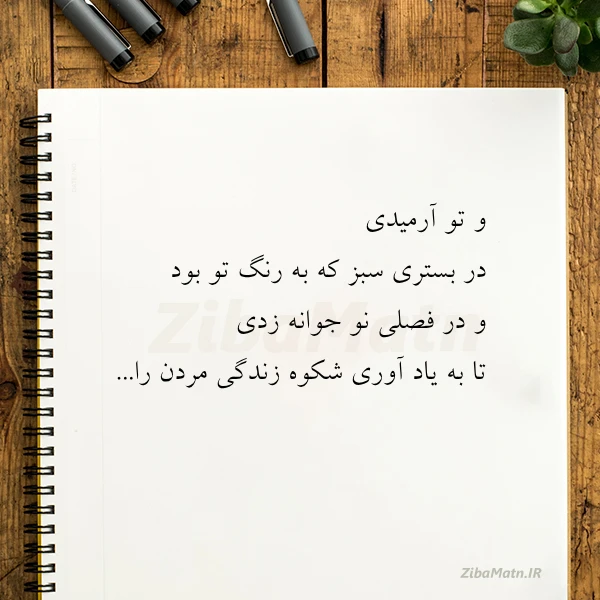 و تو آرمیدی
در بستری سبز که به رنگ تو بود
و در فصلی نو جوانه زدی
تا به یاد آوری شکوه زندگی مردن را...
ZibaMatn
ZibaMatn.IR